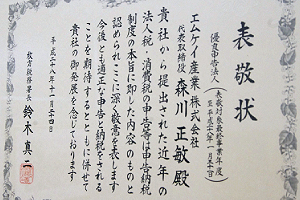 表敬状
優良申告法人
エムケイ産業株式会社
代表取締役 森川正敏殿
貴社から提出された近年の
法人税・消費税の申告等は申告納税
制度の本旨に即した内容のものと
認められここに深く敬意を表します
今後とも適正な申告と納税をされる
ことを期待するとともに併せて
貴社の御発展を念じております
平成二十八年十一月二十四日
枚方税務署長 鈴木真二